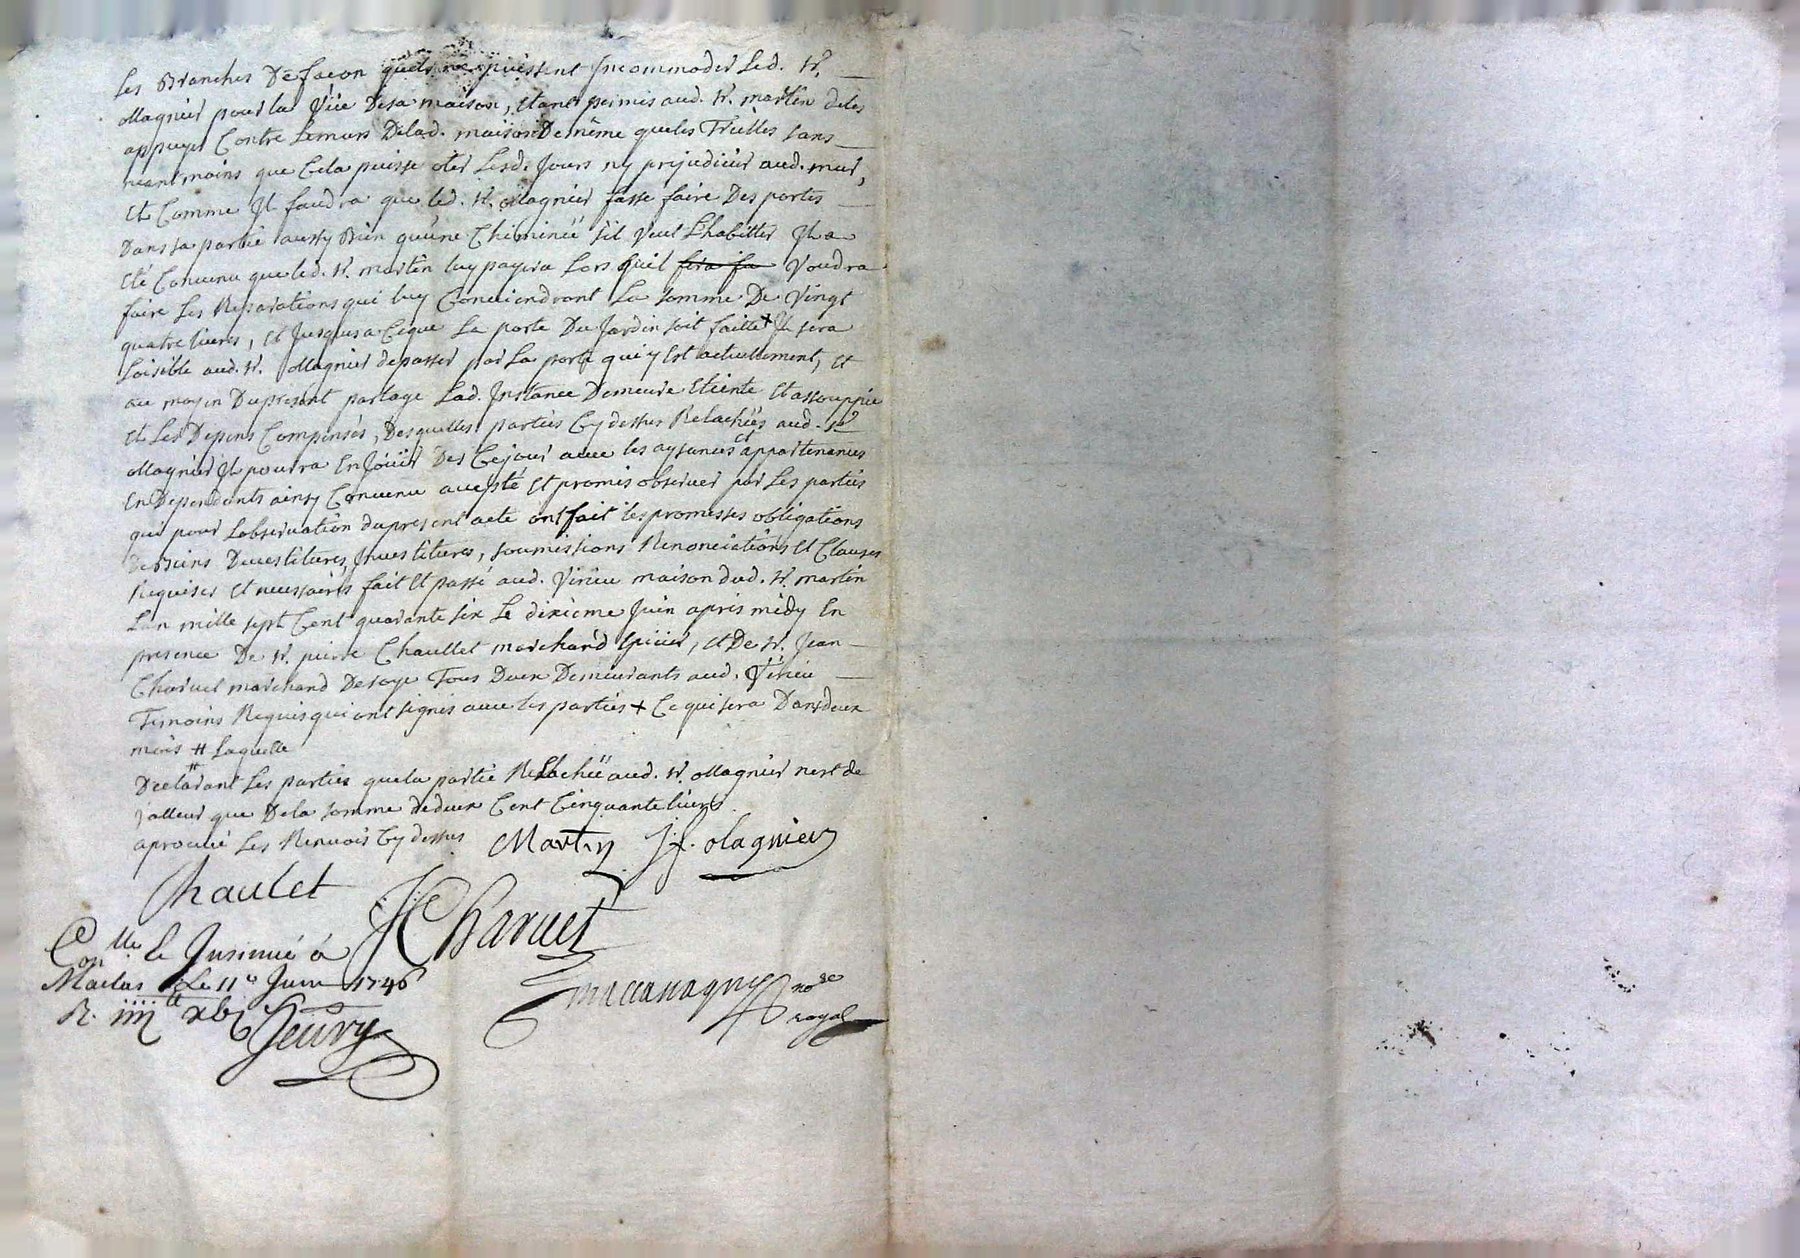 Les Branches De facon quels ne puissent Incommoder Led. Sr.
ollagnier pour la Vüe De sa maison, Etant permis aud. Sr. martin deles
appuyer Contre Lemurs Delad. maison De même queles Treilles sans
neantmoins que Cela puisse oter Lesd. Jours ny prejudicier aud. mur,
Et Comme Il faudra que led. Sr. ollagnier fasse faire Des portes
Dans sa partie aussy Bien qu'une Chiminée s'il Veut L'habitter Il a
Eté Convenu que led. Sr. martin luy payera Lors quil Voudra
faire Les Reparations qui luy Conviendront La somme De Vingt
quatre livres, et Jusques a Ceque La porte Du Jardin soit faitte + Il sera
Loisible aud. Sr. ollagnier depasser par La porte qui y Est actuellement, et
au moyen Dupresent partage Lad. Instance Demeure Eteinte Et assouppie
Et Les Depens Compensés, Desquelles parties Cy dessus Relachées aud. Sr.
ollagnier Il pourra En Joüir Des Cejour avec les aysances et appartenances
En Dependants ainsy Convenu accepté Et promis observer par Les parties
qui pour Lobservation dupresent acte ont fait les promesses obligations
De Biens Devestitures, Investitures, soumissions Renonciations Et Clauses
Requises Et necessaires fait Et passé aud. Virieu maison dud. Sr. martin
L'an mille sept Cent quarante six Le dixieme Juin apres midy En
presence De Sr. pierre Chaullet marchand Epicier, et De Sr. Jean
Charuet marchand De soye Tous Deux Demeurants aud. Virieu
Temoins Requis qui ont signés avec les parties + Ce qui sera Dans deux
mois # Laquelle
#
Declarant Les parties que la partie Relachée aud. Sr. ollagnier nest de
valleur que Dela somme dedeux Cent Cinquante livres
aprouvé Les Renvois Cy dessus Martin J. f. olagnier
Chaulet
J Charuet
Conlle. & Insinué à
Maclas Le 11e Juin 1746
R.
Fleury
no.re
royal